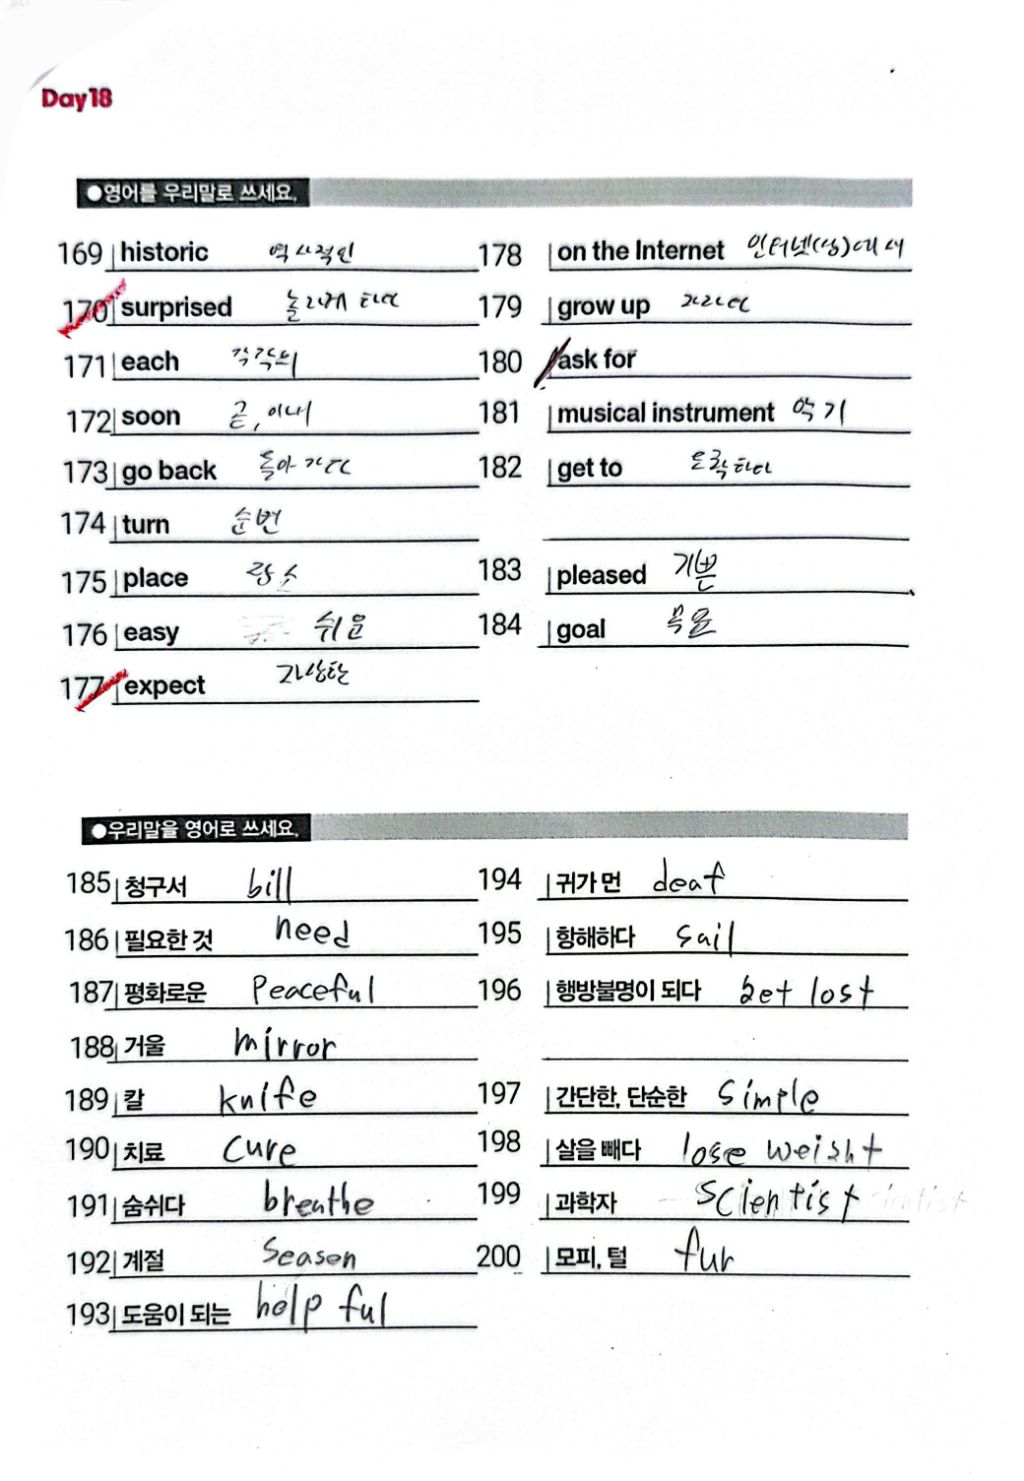 Day18
●영어를 우리말로 쓰세요.
169 historic 역사적인
170 surprised 놀라게 하다
171 each 각각의
172 soon 곧, 이내
173 go back 돌아가다
174 turn 순번
175 place 장소
176 easy 쉬운
177 expect
178 on the Internet 인터넷(상)에서
179 grow up 자라다
180 ask for
181 musical instrument 악기
182 get to 도착하다
183 pleased 기쁜
184 goal
●우리말을 영어로 쓰세요.
185 청구서 bill
186 필요한 것 need
187 평화로운 Peaceful
188 거울 mirror
189 칼 knife
190 치료 cure
191 숨쉬다 breathe
192 계절 Season
193 도움이 되는 help ful
194 귀가 먼 deaf
195 항해하다 sail
196 행방불명이 되다 get lost
197 간단한, 단순한 simple
198 살을 빼다 lose weight
199 과학자 scientist
200 모피, 털 fur